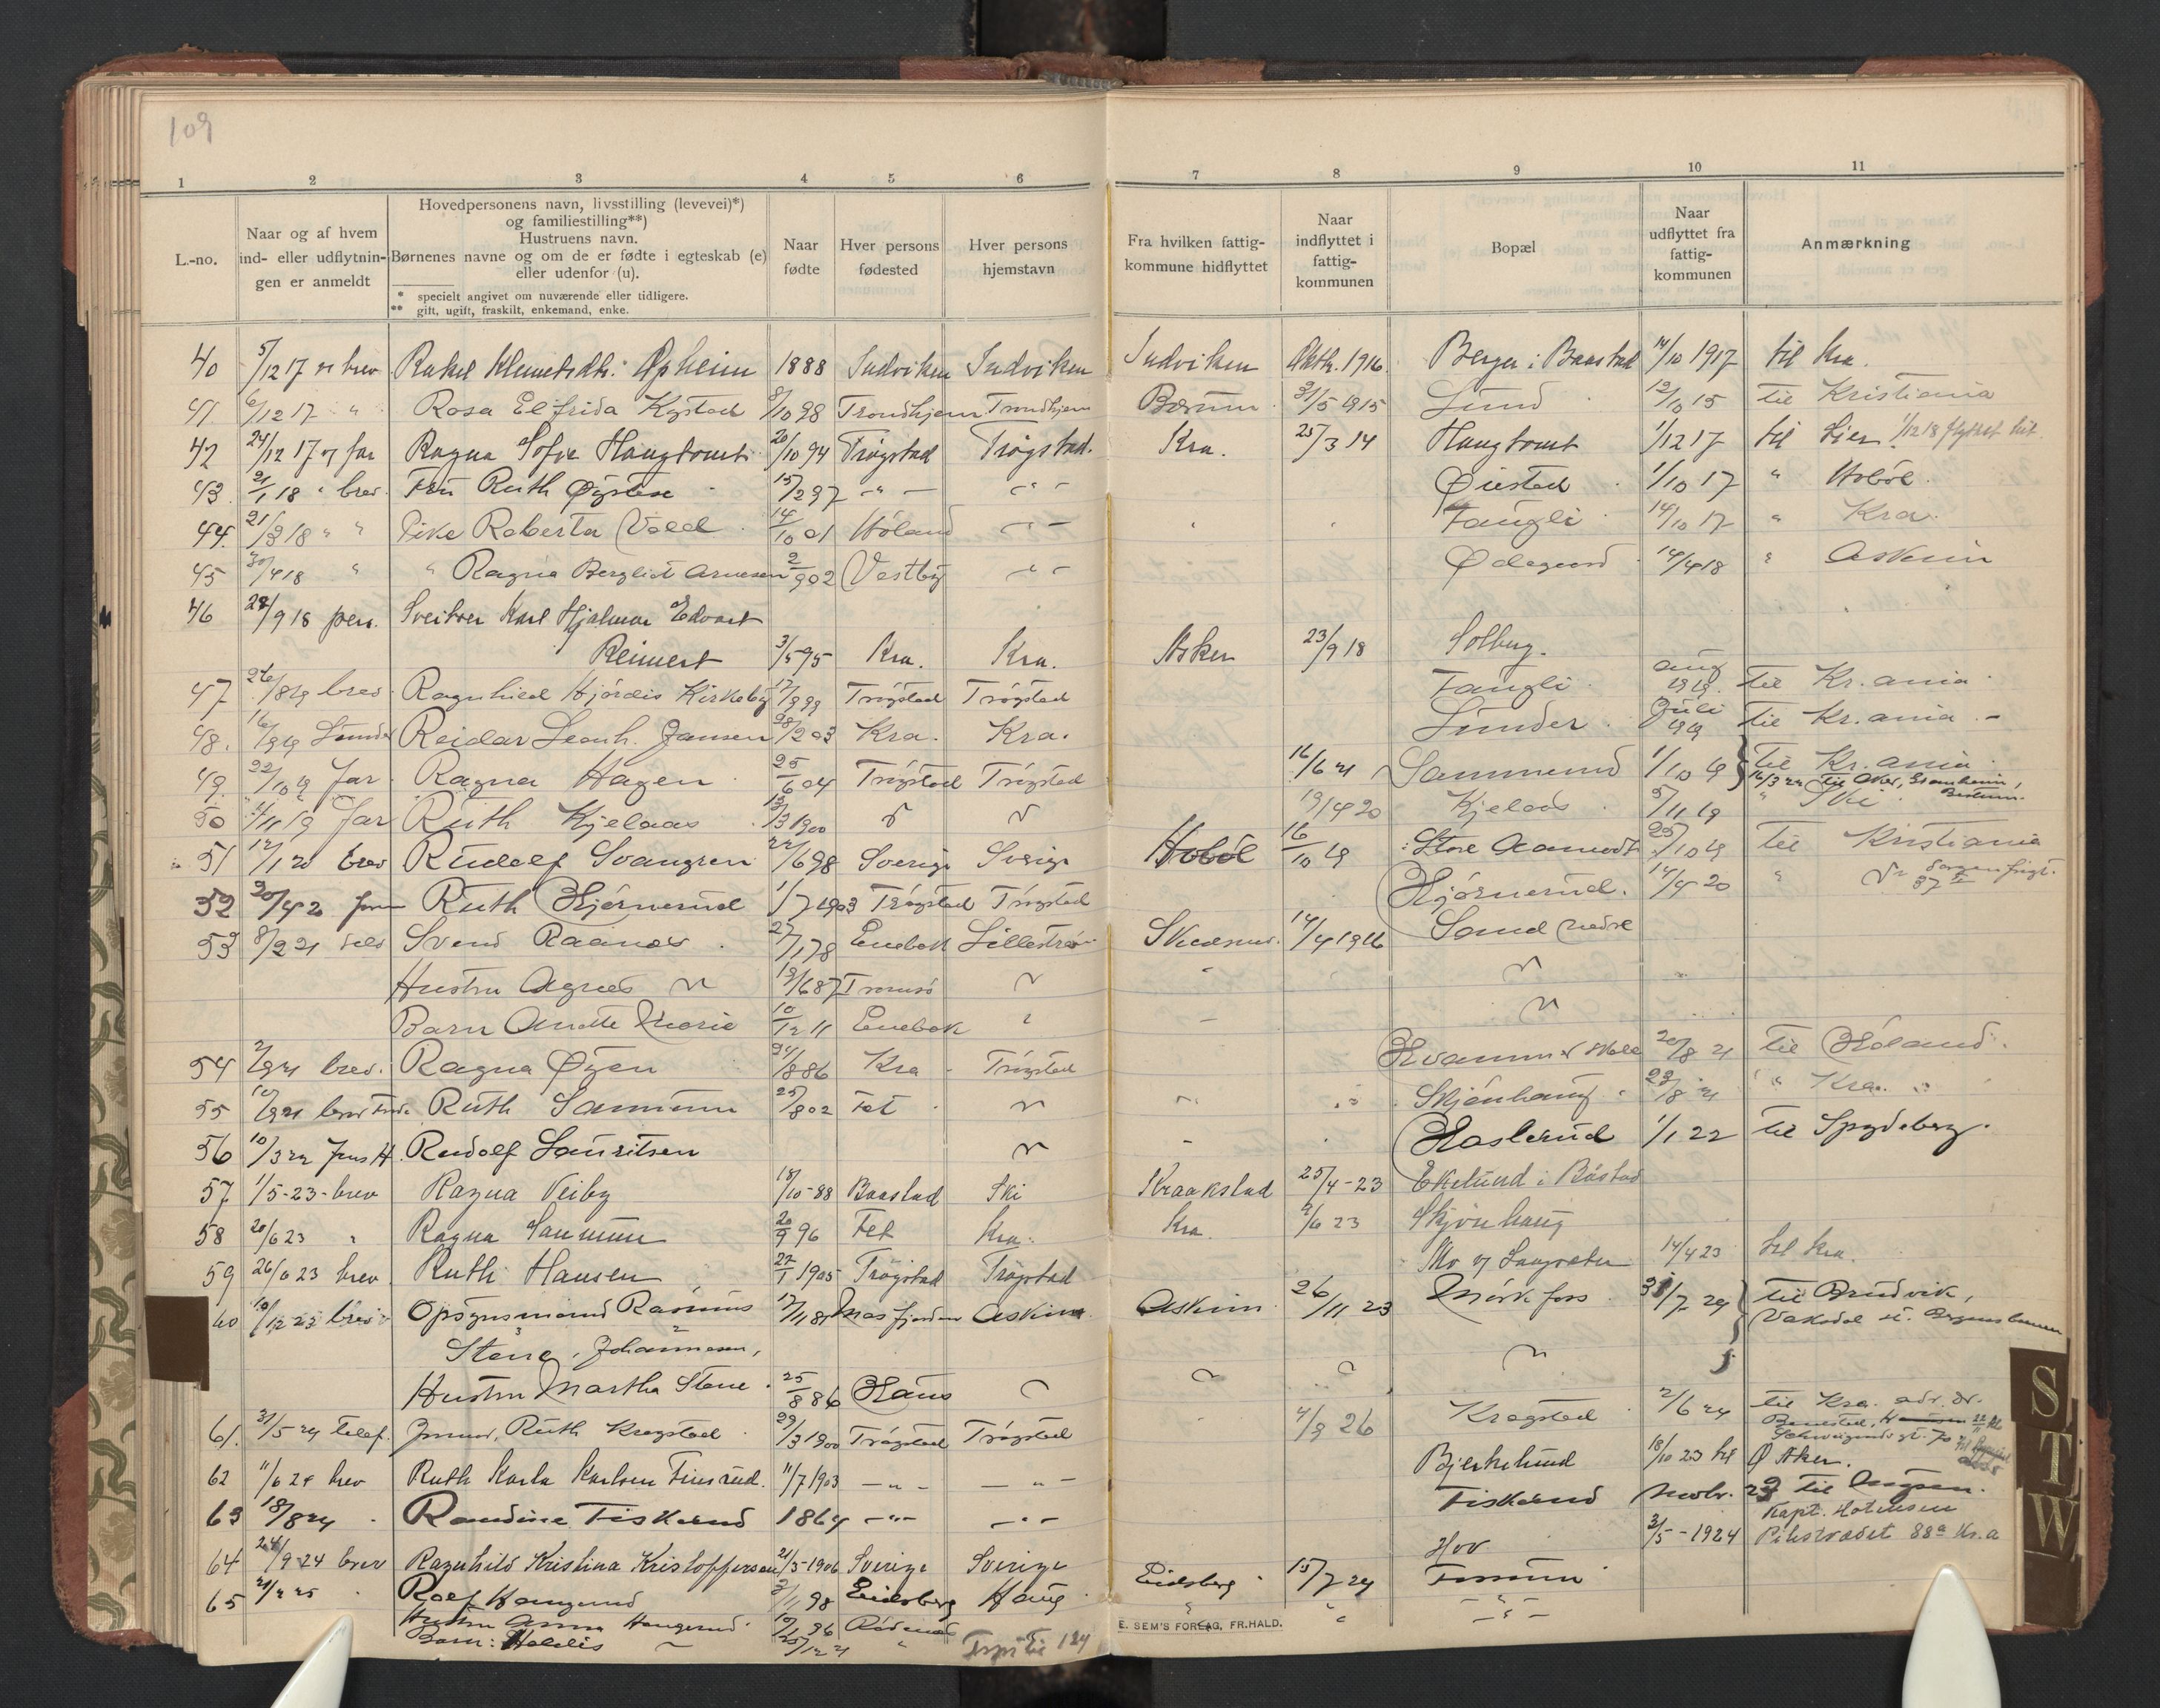 109
1 2 3 4 5 6 7 8 9 10 11
L.-no.
Naar og af hvem
ind- eller udflytnin-
gen er anmeldt
Hovedpersonens navn, livsstilling (levevei)*)
og familiestilling**)
Hustruens navn.
Børnenes navne og om de er fødte i egteskab (e)
eller udenfor (u).
* specielt angivet om nuværende eller tidligere.
** gift, ugift, fraskilt, enkemand, enke.
Naar
fødte
Hver persons
fødested
Hver persons
hjemstavn
Fra hvilken fattig-
kommune hidflyttet
Naar
indflyttet i
fattig-
kommunen
Bopæl
Naar
udflyttet fra
fattig-
kommunen
Anmærkning
40 5/12 17 brev Rakel Opheim 1888 Indviken Indviken Indviken Oktb. 1916 Berger i Baastad 14/10 1917 til Kra.
41 6/12 17 " Rosa Elfrida Kystad 8/10 98 Trondhjem Trondhjem Bærum 31/5 1915 Lund 12/10 15 til Kristiania
42 24/12 17 af far Ragna Sofie Haugtomt 20/10 94 Trøgstad Trøgstad. Kra. 25/3 14 Haugtomt 1/12 17 til Lier 1/12 18 flyttet hit
43 21/1 18 " brev. Frú Ruth Øystese 15/2 97 - " - - " - Øiestad 1/10 17 " Hobøl.
44. 21/3 18 " " Pike Roberta Vold 14/10 01 Høland - " - Fangli 14/10 17 " Kra.
45 30/4 18 " " Ragna Bergliot Arnesen 2/9 02 Vestby - " - Ødegaard 14/4 18 " Askim
46 28/9 18 pers. Sveitser Karl Hjalmar Edvart
Reimert 3/5 95 Kra. Kra. Asker 23/9 18 Solberg.
47 26/8 19 brev. Ragnhild Hjørdis Kirkeby 17/9 99 Trøgstad Trøgstad Fangli aug 1919. til Kr.ania
48. 16/9 19 Lunder Reidar Leonh. Jansen 28/2 03 Kra. Kra. Lunder Juli 1919 til Kr.ania -
49. 22/10 19 Far Ragna Hagen 25/6 04 Trøgstad Trøgstad 16/6 21 Sammerud 1/10 19 til Kr.ania
16/3 22 til Aker, Bestum.
50 1/11 19 Far Ruth Kjelaas 13/3 1900 19/4 20 Kjelaas 5/11 19 " Ski
51 12/1 20 brev Rudolf Svangren 22/6 98 Sverige Sverige Hobøl 16/10 19 Store Aamodt 25/10 19 til Kristiania
52 20/4 20 Ruth Bjørnerud 1/7 1903 Trøgstad Trøgstad Bjørnerud. 14/4 20 " Sorgenfrigt. 37 II
53 8/2 21 selv Svend Raanaas 27/1 78 Enebak Lillestrøm Skedsmo. 14/4 1916 Sand nedre
Hustru Agnes 19/6 87 Tromsø
Barn Anette Marie 10/12 11 Enebak
54 2/9 21 brev. Ragna Øyen 31/8 86 Kra Trøgstad 20/8 21 til Høland.
55 10/9 21 brev Ruth Sammun 25/8 02 Fet Skjønhaug 23/8 21 " Kra.
56 10/3 22 Jens H. Rudolf Lauritsen Haslerud 1/1 22 til Spydeberg.
57 1/5-23-brev Ragna Veiby 18/10-88 Baastad Ski Kraakstad 25/4-23 Ekelund i Båstad
58 20/6 23 " Ragna Sanmun 20/9 96 Fet Kra. Kra. 2/6 23 Skjønhaug
59 26/6 23 brev Ruth Hansen 22/1 1905 Trøgstad Trøgstad Mo 14/4 23 til Kra.
60 10/12 23 brev Opsynsmand Rasmus 12/11 81 Masfjorden Askim Askim 26/11 23 Mørkfoss 31/7 24 til Bruvik,
Stene, Johannesen, Vaksdal st. Bergensbanen
Hustru Martha Stene 25/8 86 Haus
61. 31/5 24 telef. Ruth Kragstad 29/3 1900 Trøgstad Trøgstad 4/9 26 Kragstad 2/6 24 til Kra. adr. dr.
Schweigaards gt. 70
62 11/6 24 brev Ruth Karla Karlsen Finsrud. 11/7 1903 - " - - " - Bjerkelund 18/10 23 til Ø Aker.
63 18/8 24 Randine Fiskerud 1864 - " - - " - Fiskerud Novbr. 23 til
Kapt. Hotensen
64 24/9-24 brev Ragnhild Kristina Kristoffersen 21/5-1906 Sverige Sverige Hov 3/5-1924 Pilestrædet 88a Kr.a
65 Rolf Haugerud 3/11 98 Eidsberg Haug Eidsberg 15/7 24
Hustru Anna Haugerud 10/1 96 Rødenes
Barn: Halldis 25/12 21 "
194
E. SEM'S FORLAG, FR.HALD.
STW